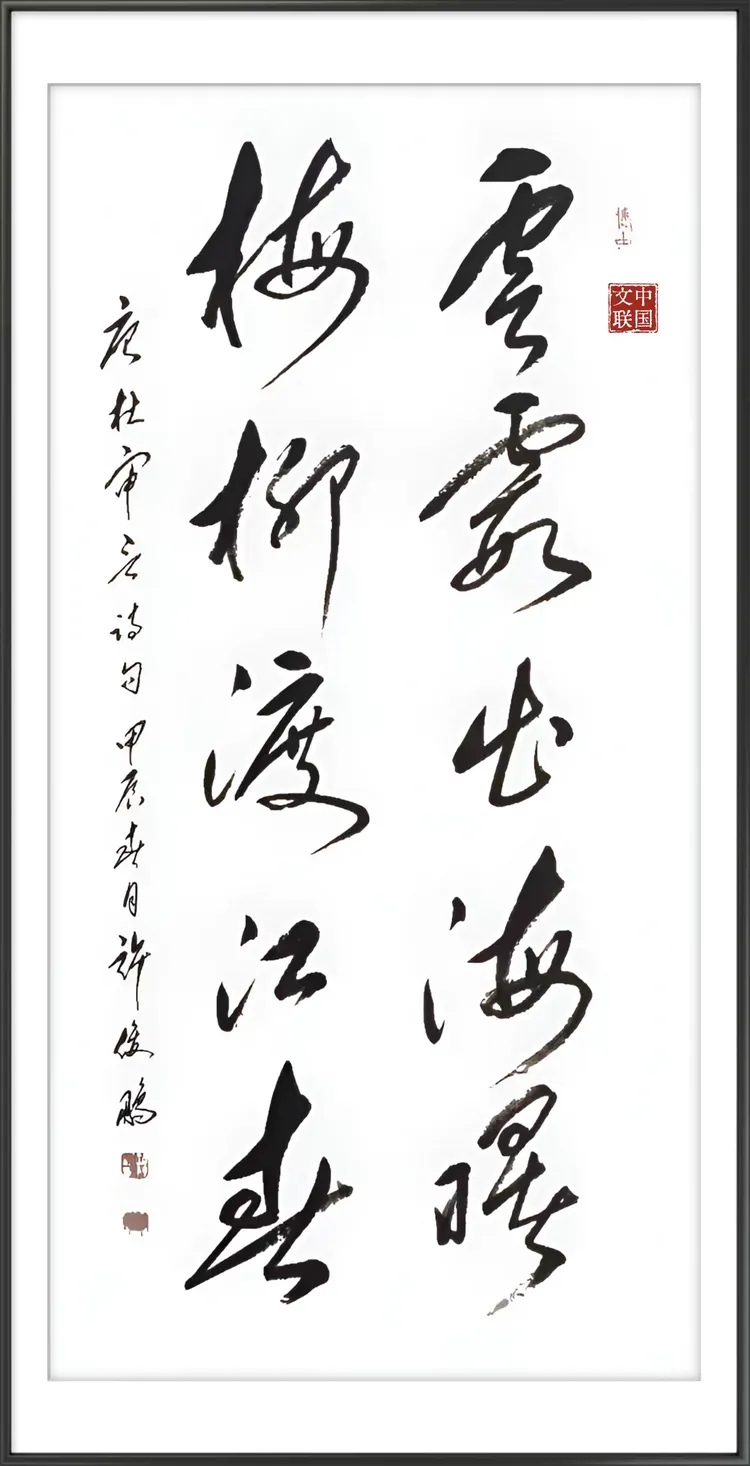 雲霞出海曙
梅柳渡江春
唐杜审言诗句甲辰春月许俊鹏
中国文联